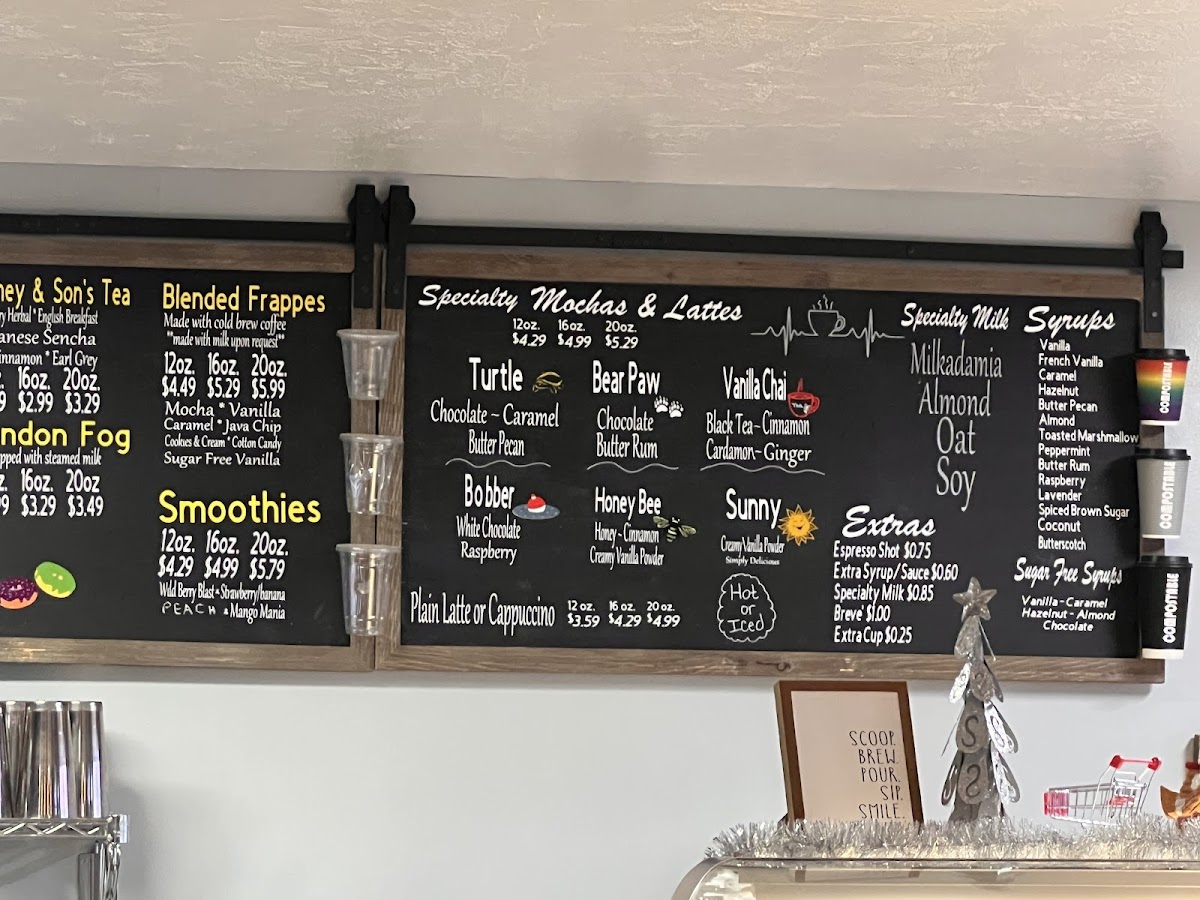 ney & Son's Tea
ry Herbal * English Breakfast
anese Sencha
innamon * Earl Grey
16oz. 20oz.
9 $2.99 $3.29
ndon Fog
pped with steamed milk
z. 16oz. 20oz
99 $3.29 $3.49
Blended Frappes
Made with cold brew coffee
"made with milk upon request"
12oz. 16oz. 20oz.
$4.49 $5.29 $5.99
Mocha * Vanilla
Caramel * Java Chip
Cookies & Cream * Cotton Candy
Sugar Free Vanilla
Smoothies
12oz. 16oz. 20oz.
$4.29 $4.99 $5.79
Wild Berry Blast * Strawberry/banana
PEACH * Mango Mania
Specialty Mochas & Lattes
12oz. 16oz. 20oz.
$4.29 $4.99 $5.29
Turtle
Chocolate ~ Caramel
Butter Pecan
Bear Paw
Chocolate
Butter Rum
Vanilla Chai
Black Tea ~ Cinnamon
Cardamon ~ Ginger
Bobber
White Chocolate
Raspberry
Honey Bee
Honey ~ Cinnamon
Creamy Vanilla Powder
Sunny
Creamy Vanilla Powder
Simply Delicious
Plain Latte or Cappuccino
12 oz. 16 oz. 20 oz.
$3.59 $4.29 $4.99
Hot
or
Iced
Specialty Milk
Milkadamia
Almond
Oat
Soy
Extras
Espresso Shot $0.75
Extra Syrup/Sauce $0.60
Specialty Milk $0.85
Breve' $1.00
Extra Cup $0.25
Syrups
Vanilla
French Vanilla
Caramel
Hazelnut
Butter Pecan
Almond
Toasted Marshmallow
Peppermint
Butter Rum
Raspberry
Lavender
Spiced Brown Sugar
Coconut
Butterscotch
Sugar Free Syrups
Vanilla ~ Caramel
Hazelnut ~ Almond
Chocolate
COMPOSTABLE
COMPOSTABLE
COMPOSTABLE
SCOOP.
BREW.
POUR.
SIP.
SMILE.